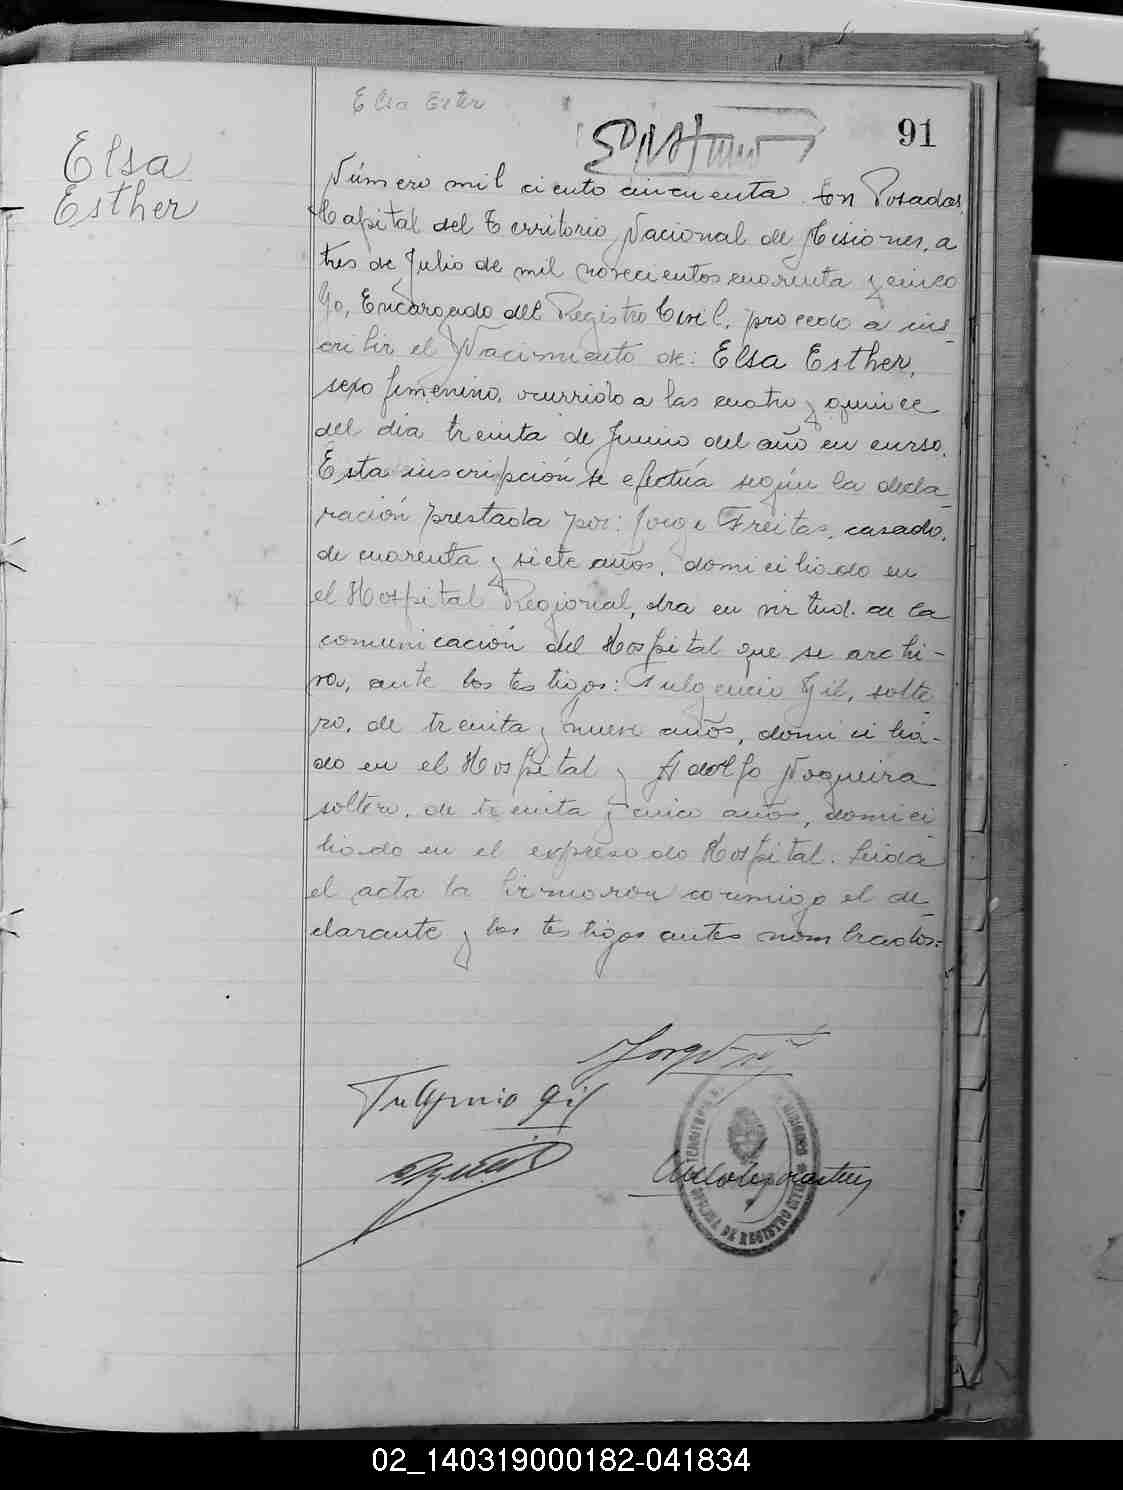 Elsa Ester
91
Elsa
Esther
Número mil ciento cincuenta. En Posadas,
Capital del Territorio Nacional de Misiones, a
tres de Julio de mil novecientos cuarenta y cinco
Yo, Encargado del Registro Civil, procedo a ins-
cribir el Nacimiento de: Elsa Esther,
sexo femenino, ocurrido a las cuatro y quince
del día treinta de Junio del año en curso.
Esta inscripción se efectúa según la decla-
ración prestada por: Jorge Freitas, casado,
de cuarenta y siete años, domiciliado en
el Hospital Regional, en virtud de la
comunicación del Hospital que se archi-
va, ante los testigos: Fulgencio Gil, solte-
ro, de treinta y nueve años, domicilia-
do en el Hospital y Adolfo Nogueira
soltero, de treinta y cinco años, domici-
liado en el expresado Hospital. Leida
el acta la firmaron conmigo el de-
clarante y los testigos antes nombrados:
Fulgencio Gil
OFICINA DE REGISTRO CIVIL
02_140319000182-041834